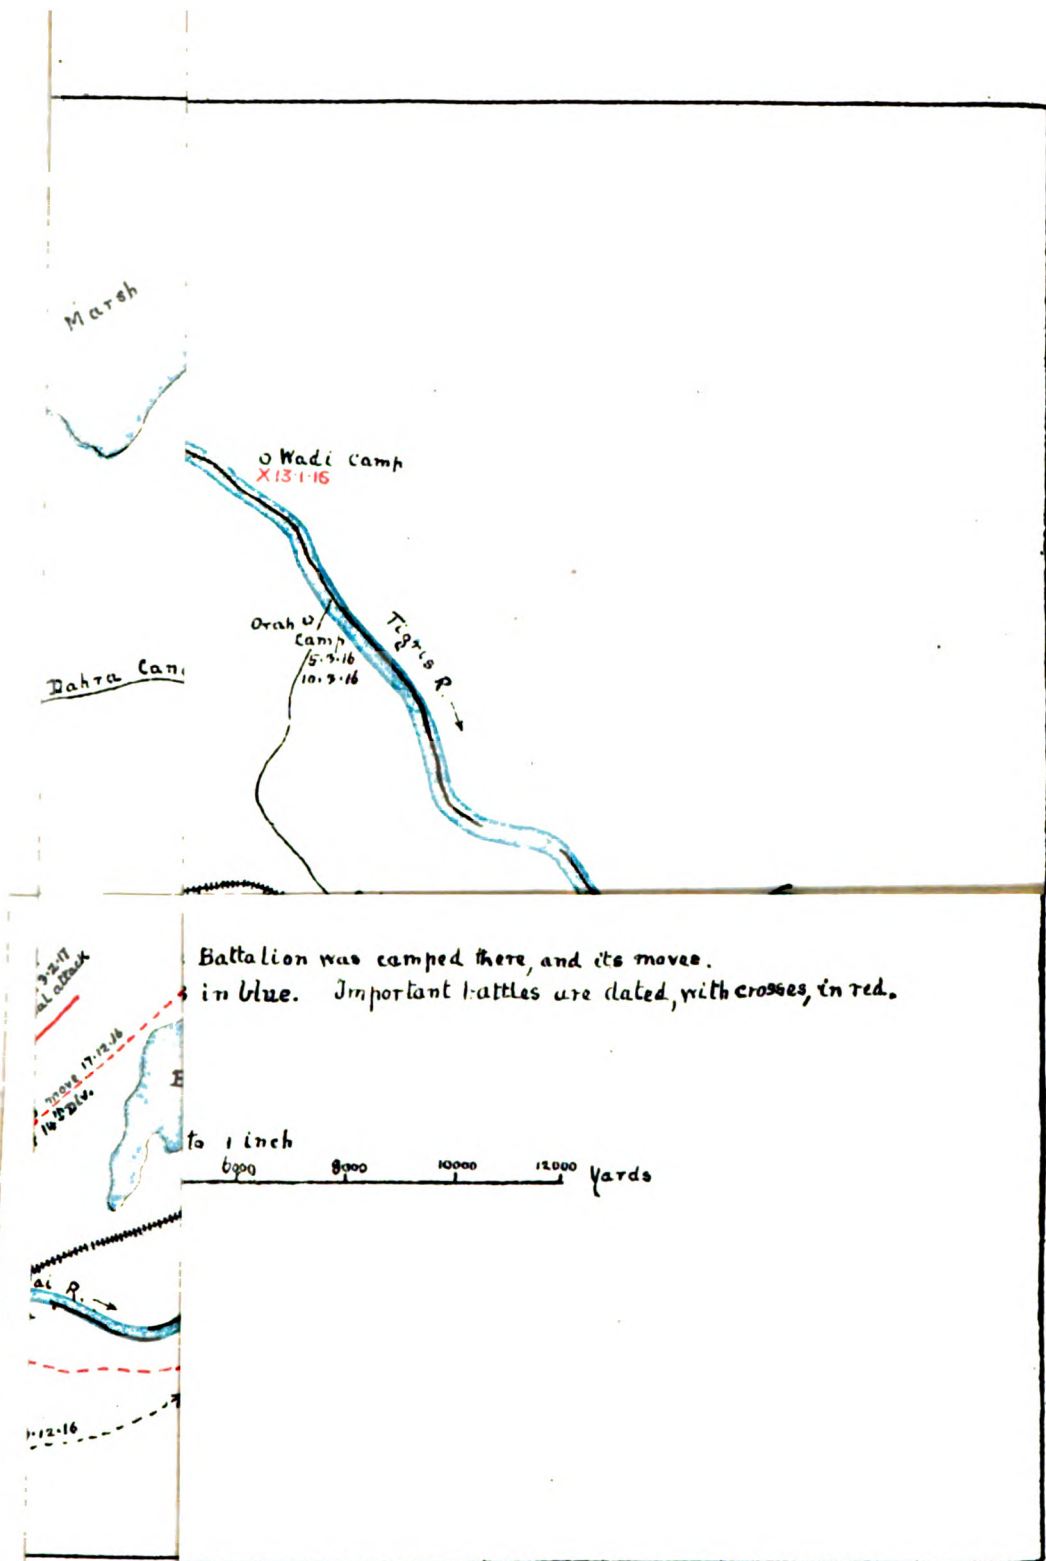 Marsh
Wadi Camp
X 13·1·16
Orah
Camp
5·3·16
10·3·16
Tigris R.
Dahra
3·2·17
attack
Battalion was camped there, and its moves.
in blue. Important battles are dated, with crosses, in red.
move 17·12·16
14th Div.
to 1 inch
6000 8000 10000 12000 Yards
R.
12·16